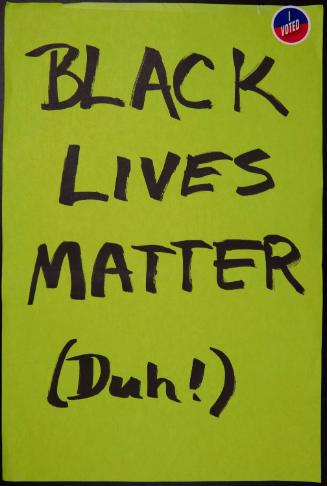 I
VOTED
BLACK
LIVES
MATTER
(Duh!)